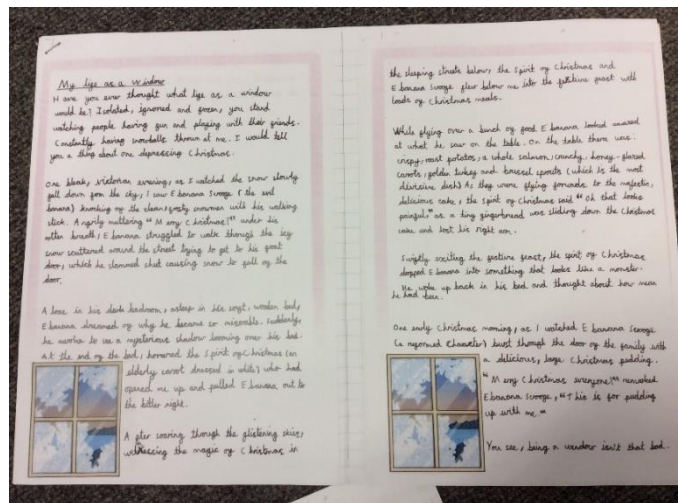 My life as a window
Have you ever thought what life as a window
would be? Isolated, ignored and frozen, you stand
watching people having fun and playing with their friends.
Constantly having snowballs thrown at me. I would tell
you a thing about one depressing Christmas.
One bleak, victorian evening, as I watched the snow slowly
fall down from the sky, I saw Ebanana Scrooge (the evil
banana) knocking off the clean, frosty snowmen with his walking
stick. Angrily muttering "Merry Christmas!" under his
rotten breath, Ebanana struggled to walk through the icy
snow scattered around the street trying to get to his front
door, which he slammed shut causing snow to fall off the
door.
Alone in his dark bedroom, asleep in his soft, wooden bed,
Ebanana dreamed of why he became so miserable. Suddenly,
he awoke to see a mysterious shadow looming over his bed.
At the end of the bed, hovered the Spirit of Christmas (an
elderly carrot dressed in white) who had
opened me up and pulled Ebanana out to
the bitter night.
After soaring through the glistening skies,
witnessing the magic of Christmas in
the sleeping streets below, the Spirit of Christmas and
Ebanana Scrooge flew below me into the feast with
loads of Christmas meals.
While flying over a bunch of food Ebanana looked amazed
at what he saw on the table. On the table there was:
crispy, roast potatos, a whole salmon, crunchy honey-glazed
carrots, golden turkey and brussel sprouts (which is the most
divisive dish) As they were flying forwards to the majestic,
delicious cake, the spirit of Christmas said "Oh that looks
painful," as a tiny gingerbread was sliding down the Christmas
cake and lost his right arm.
Swiftly exiting the festive feast, the spirit of Christmas
dropped Ebanana into something that looks like a monster.
He woke up back in his bed and thought about how mean
he had been.
One early Christmas morning, as I watched Ebanana Scrooge
(a reformed character) burst through the door of the family with
a delicious, large Christmas pudding.
"Merry Christmas everyone!" remarked
Ebanana Scrooge, "This is for pudding
up with me."
You see, being a window isn't that bad.